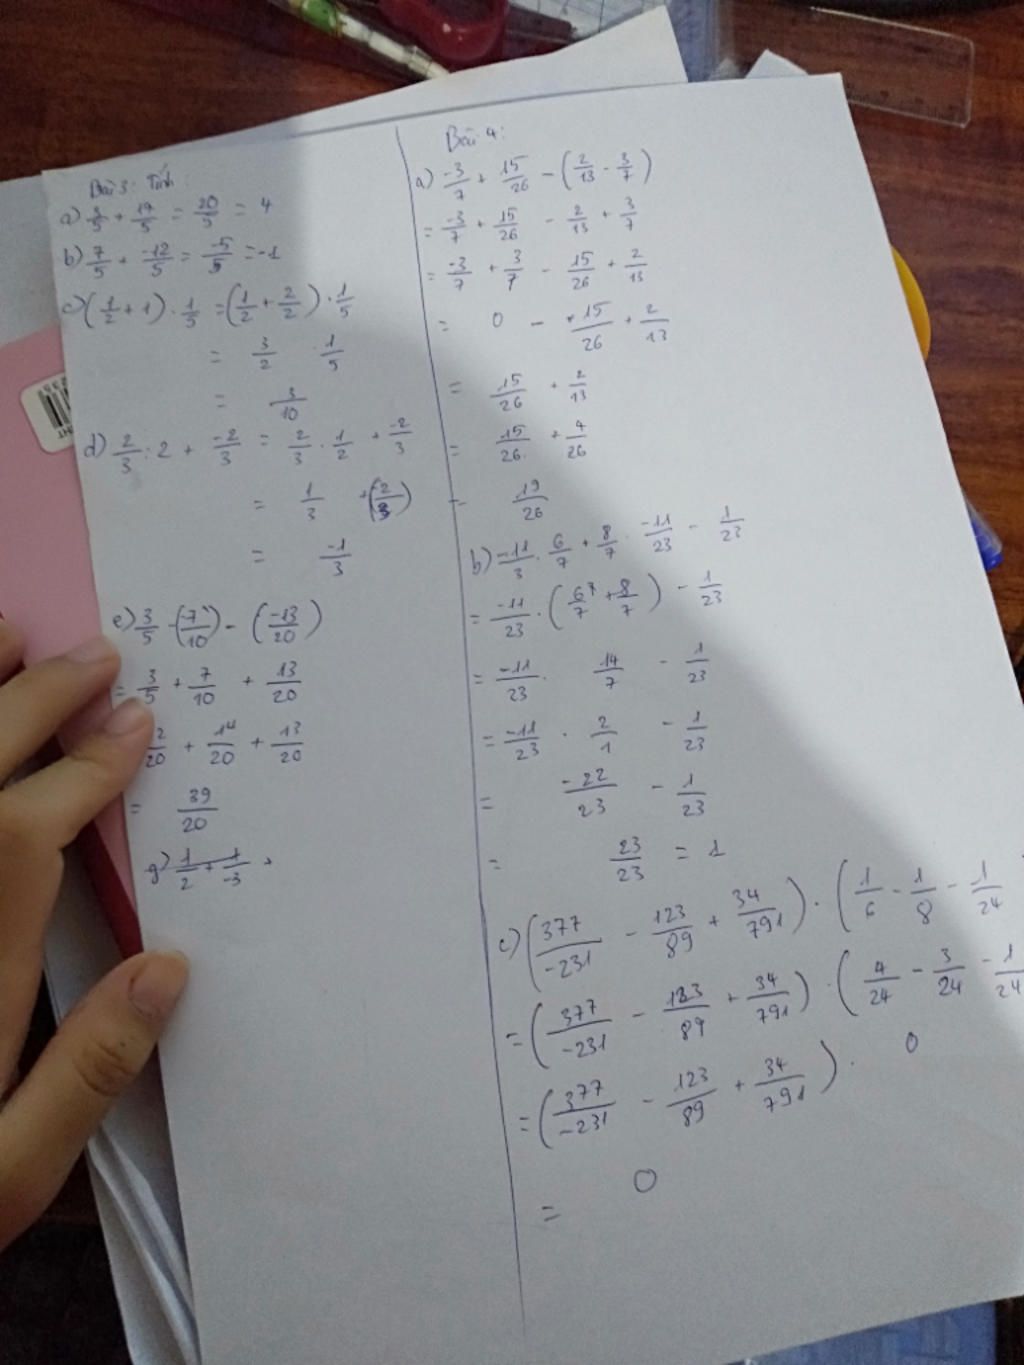 Bài 3: Tính:
a) 3/5 + 17/5 = 20/5 = 4
b) 7/5 + -12/5 = -5/5 = -1
c) (1/2 + 1) . 1/5 = (1/2 + 2/2) . 1/5
= 3/2 . 1/5
= 3/10
d) 2/3 : 2 + -2/3 = 2/3 . 1/2 + -2/3
= 1/3 + (-2/3)
= -1/3
e) 3/5 - (-7/10) - (-13/20)
= 3/5 + 7/10 + 13/20
2/20 + 14/20 + 13/20
= 39/20
g) 1/2 + 1/-3 +
Bài 4:
a) -3/7 + 15/26 - (2/13 - 3/7)
= -3/7 + 15/26 - 2/13 + 3/7
= -3/7 + 3/7 - 15/26 + 2/13
= 0 - 15/26 + 2/13
= 15/26 + 2/13
= 15/26 + 4/26
= 19/26
b) -11/3 . 6/7 + 8/7 . -11/23 - 1/23
= -11/23 . (6/7 + 8/7) - 1/23
= -11/23 . 14/7 - 1/23
= -11/23 . 2/1 - 1/23
= -22/23 - 1/23
= 23/23 = 1
c) (377/-231 - 123/89 + 34/791) . (1/6 - 1/8 - 1/24
= (377/-231 - 123/89 + 34/791) . (4/24 - 3/24 - 1/24
= (377/-231 - 123/89 + 34/791) . 0
= 0